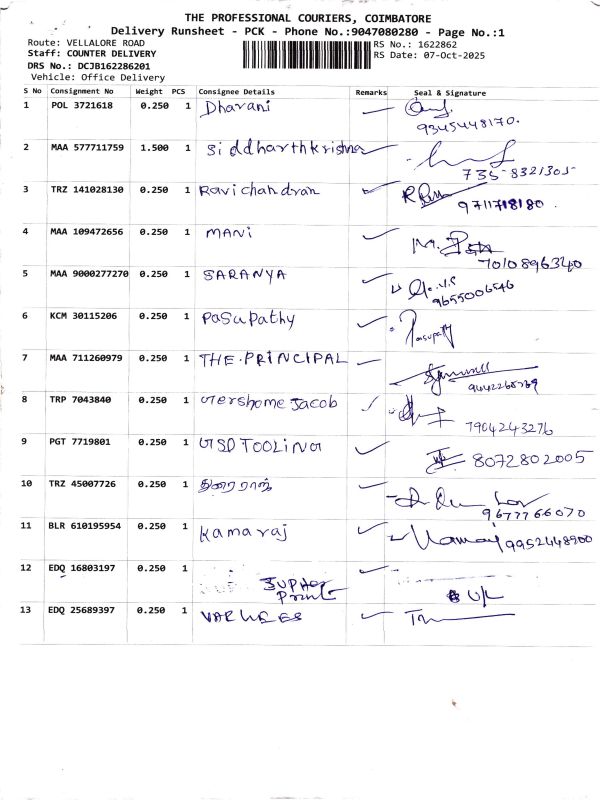 THE PROFESSIONAL COURIERS, COIMBATORE
Delivery Runsheet - PCK - Phone No.:9047080280 - Page No.:1
Route: VELLALORE ROAD
RS No.: 1622862
Staff: COUNTER DELIVERY
RS Date: 07-Oct-2025
DRS No.: DCJB162286201
Vehicle: Office Delivery
S No Consignment No Weight PCS Consignee Details Remarks Seal & Signature
1 POL 3721618 0.250 1 Dharani
9345448170.
2 MAA 577711759 1.500 1 Siddharthkrishna
735-8321305
3 TRZ 141028130 0.250 1 Ravichandran
9711718180.
4 MAA 109472656 0.250 1 MANI
7010896340
5 MAA 9000277270 0.250 1 SARANYA
9655006546
6 KCM 30115206 0.250 1 Pasupathy Pasupathy
7 MAA 711260979 0.250 1 THE.PRINCIPAL
8 TRP 7043840 0.250 1 Gershome Jacob
7904243276
9 PGT 7719801 0.250 1 GSD TOOLING 8072802005
10 TRZ 45007726 0.250 1 துரைராஜ்
9677766070
11 BLR 610195954 0.250 1 Kamaraj Kamaraj 9952448900
12 EDQ 16803197 0.250 1
Print
13 EDQ 25689397 0.250 1 VARGEES